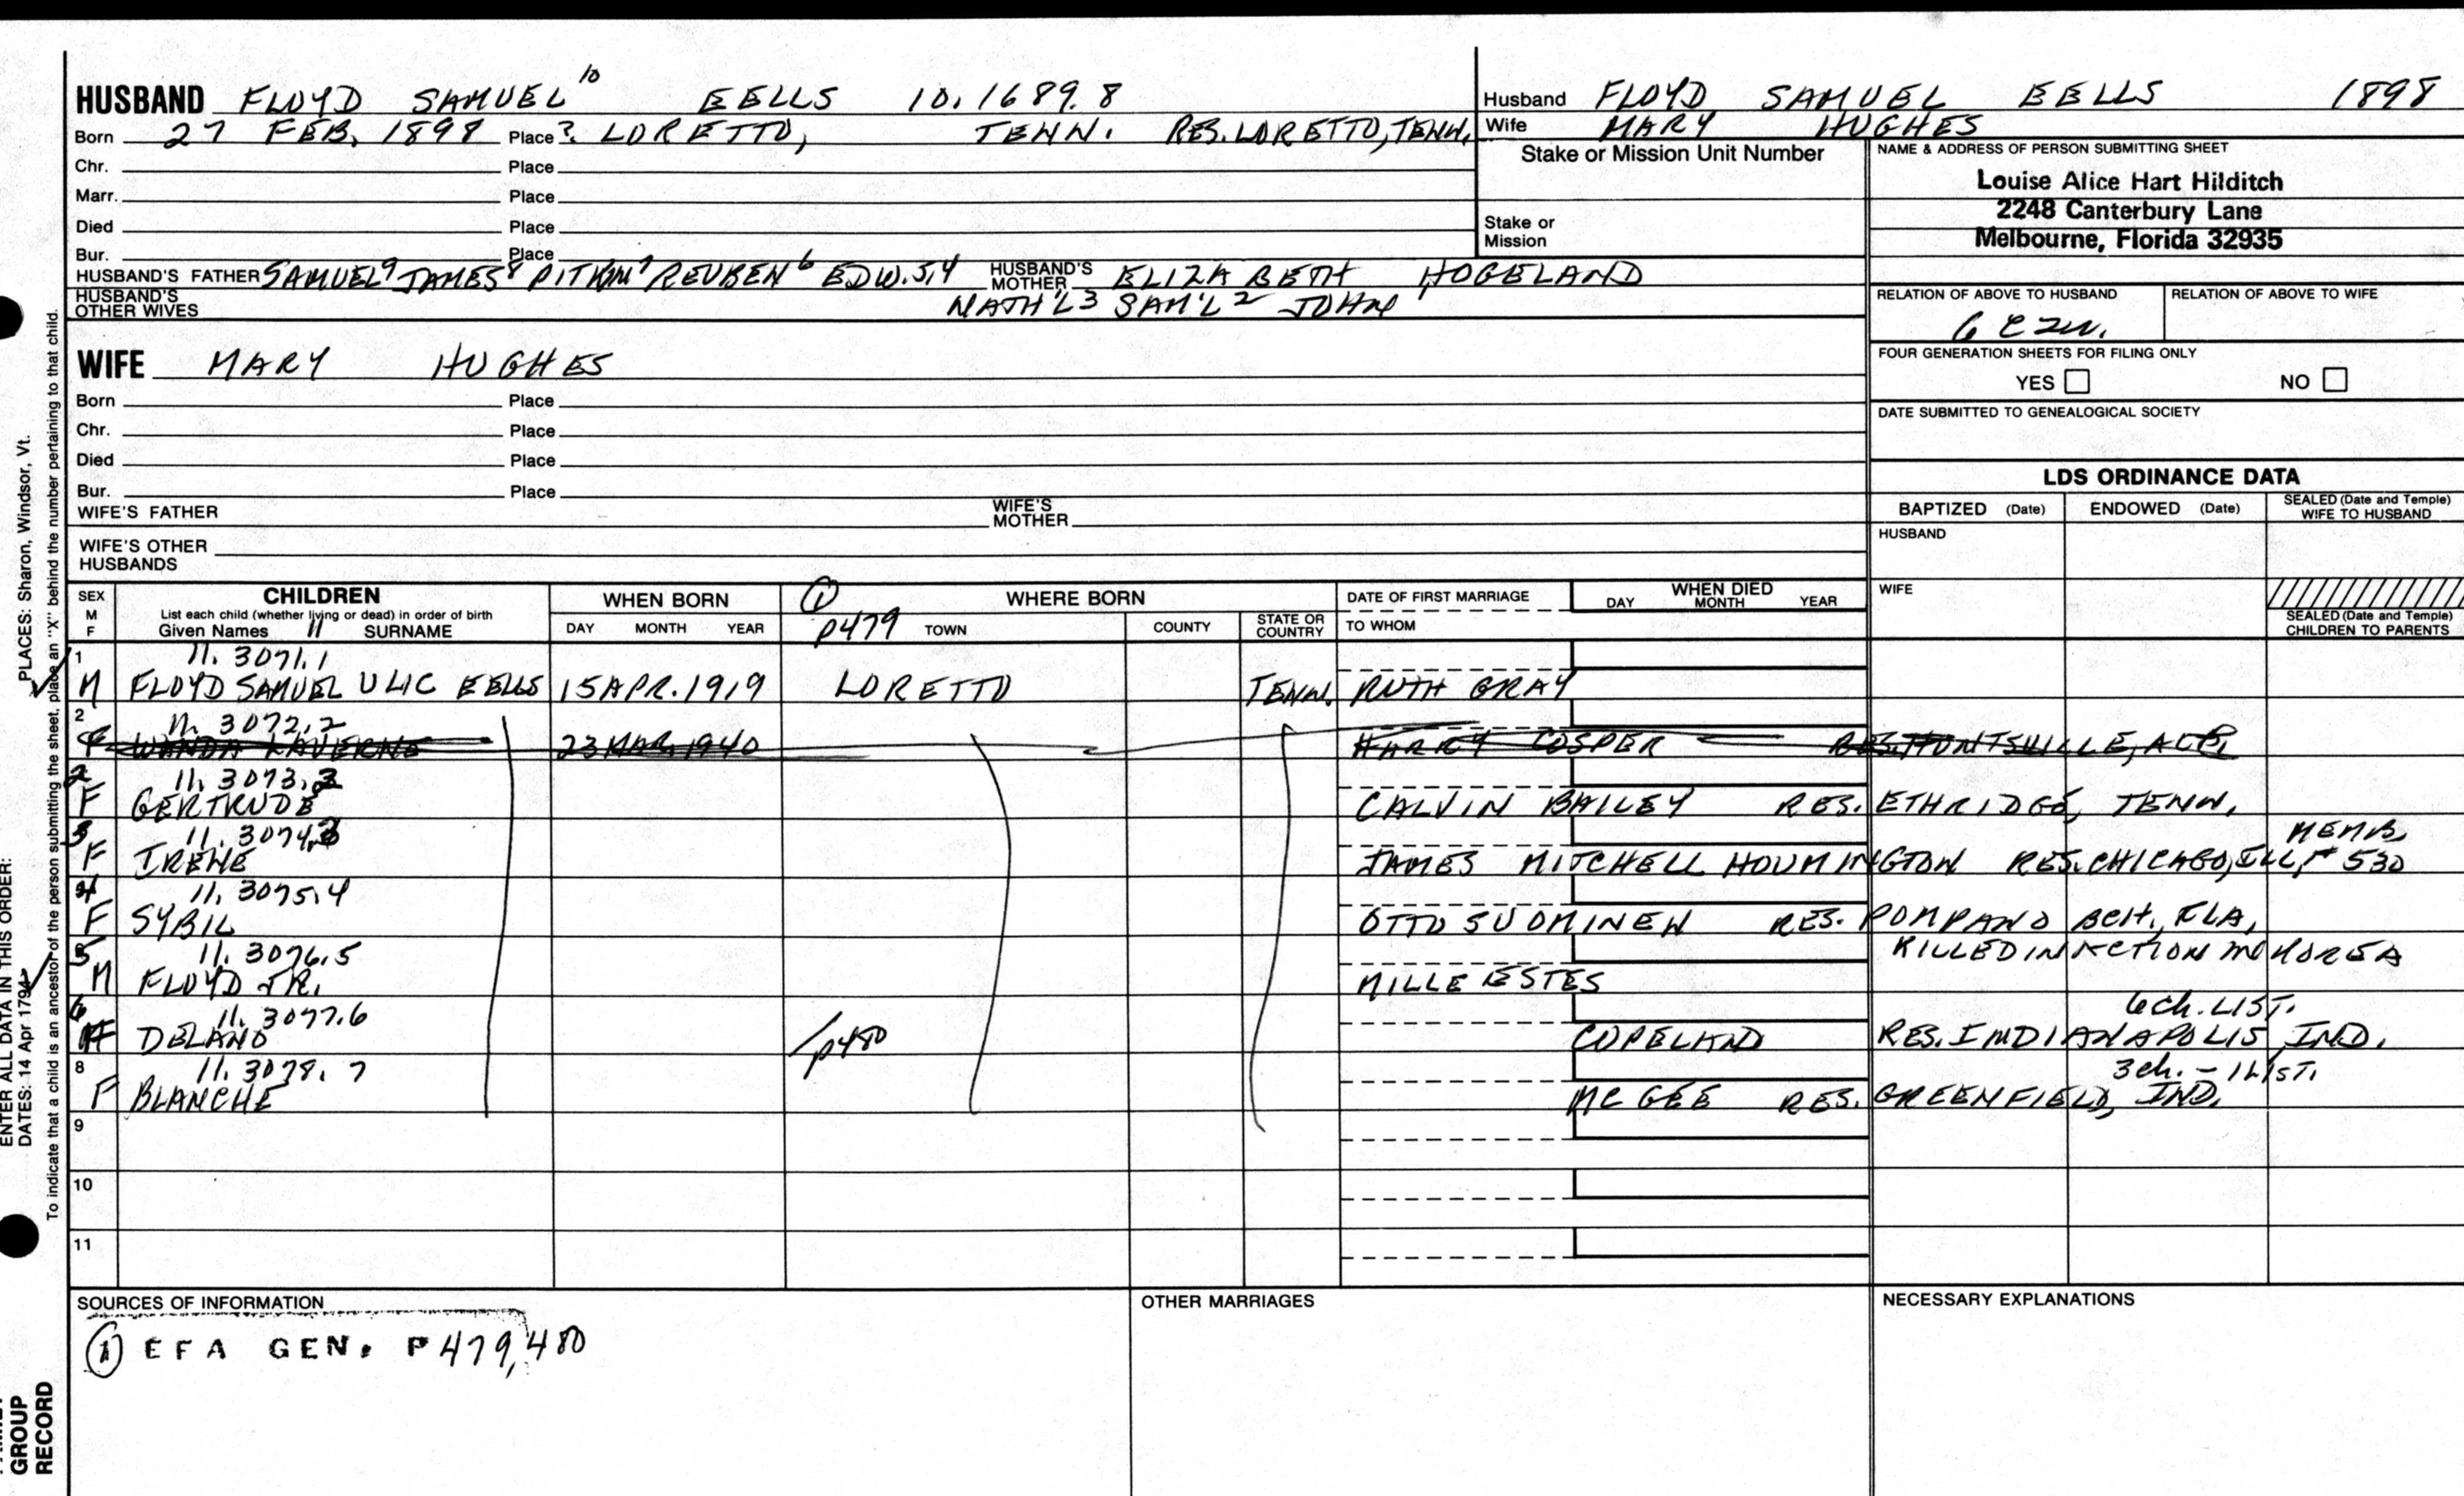 HUSBAND FLOYD SAMUEL 10 EELLS 10.1689.8
Born 27 FEB. 1898 Place ? LORETTO, TENN. RES. LORETTO, TENN.
Chr. Place
Marr. Place
Died Place
Bur. Place
HUSBAND'S FATHER SAMUEL 9 JAMES 8 PITKIN 7 REUBEN 6 EDW. 5,4 HUSBAND'S MOTHER ELIZABETH HOGELAND
HUSBAND'S OTHER WIVES NATH'L 3 SAM'L 2 JOHN 1
Husband FLOYD SAMUEL EELLS 1898
Wife MARY HUGHES
Stake or Mission Unit Number
Stake or Mission
NAME & ADDRESS OF PERSON SUBMITTING SHEET
Louise Alice Hart Hilditch
2248 Canterbury Lane
Melbourne, Florida 32935
RELATION OF ABOVE TO HUSBAND RELATION OF ABOVE TO WIFE
FOUR GENERATION SHEETS FOR FILING ONLY
YES NO
DATE SUBMITTED TO GENEALOGICAL SOCIETY
WIFE MARY HUGHES
Born Place
Chr. Place
Died Place
Bur. Place
WIFE'S FATHER WIFE'S MOTHER
WIFE'S OTHER HUSBANDS
LDS ORDINANCE DATA
BAPTIZED (Date) ENDOWED (Date) SEALED (Date and Temple) WIFE TO HUSBAND
HUSBAND
WIFE
SEALED (Date and Temple) CHILDREN TO PARENTS
SEX M F
CHILDREN
List each child (whether living or dead) in order of birth
Given Names 11 SURNAME
WHEN BORN
DAY MONTH YEAR
1 p479
WHERE BORN
TOWN COUNTY STATE OR COUNTRY
DATE OF FIRST MARRIAGE
TO WHOM
WHEN DIED
DAY MONTH YEAR
1 11. 3071.1
M FLOYD SAMUEL ULIC EELLS 15 APR. 1919 LORETTO TENN. RUTH GRAY
2 11. 3072.2
F WANDA LAVERNE 23 MAR. 1940 HARRY COSPER RES. HUNTSVILLE, ALA.
2 11. 3073.2
F GERTRUDE CALVIN BAILEY RES. ETHRIDGE, TENN.
3 11. 3074.3 MEMB.
F IRENE JAMES MITCHELL HOUMINGTON RES. CHICAGO, ILL, # 530
4 11. 3075.4
F SYBIL OTTO SUOMINEN RES. POMPANO BCH., FLA,
5 11. 3076.5 KILLED IN ACTION IN KOREA
M FLOYD JR. MILLE ESTES
6 11. 3077.6 6 ch. LIST.
F DELANO p480 COPELAND RES. INDIANAPOLIS, IND.
8 11. 3078. 7 3 ch. - 1 LIST.
F BLANCHE MC GEE RES. GREENFIELD, IND.
9
10
11
SOURCES OF INFORMATION
1 EFA GEN. P 479, 480
OTHER MARRIAGES
NECESSARY EXPLANATIONS
ENTER ALL DATA IN THIS ORDER:
DATES: 14 Apr 1794 PLACES: Sharon, Windsor, Vt.
To indicate that a child is an ancestor of the person submitting the sheet, place an "X" behind the number pertaining to that child.
GROUP
RECORD